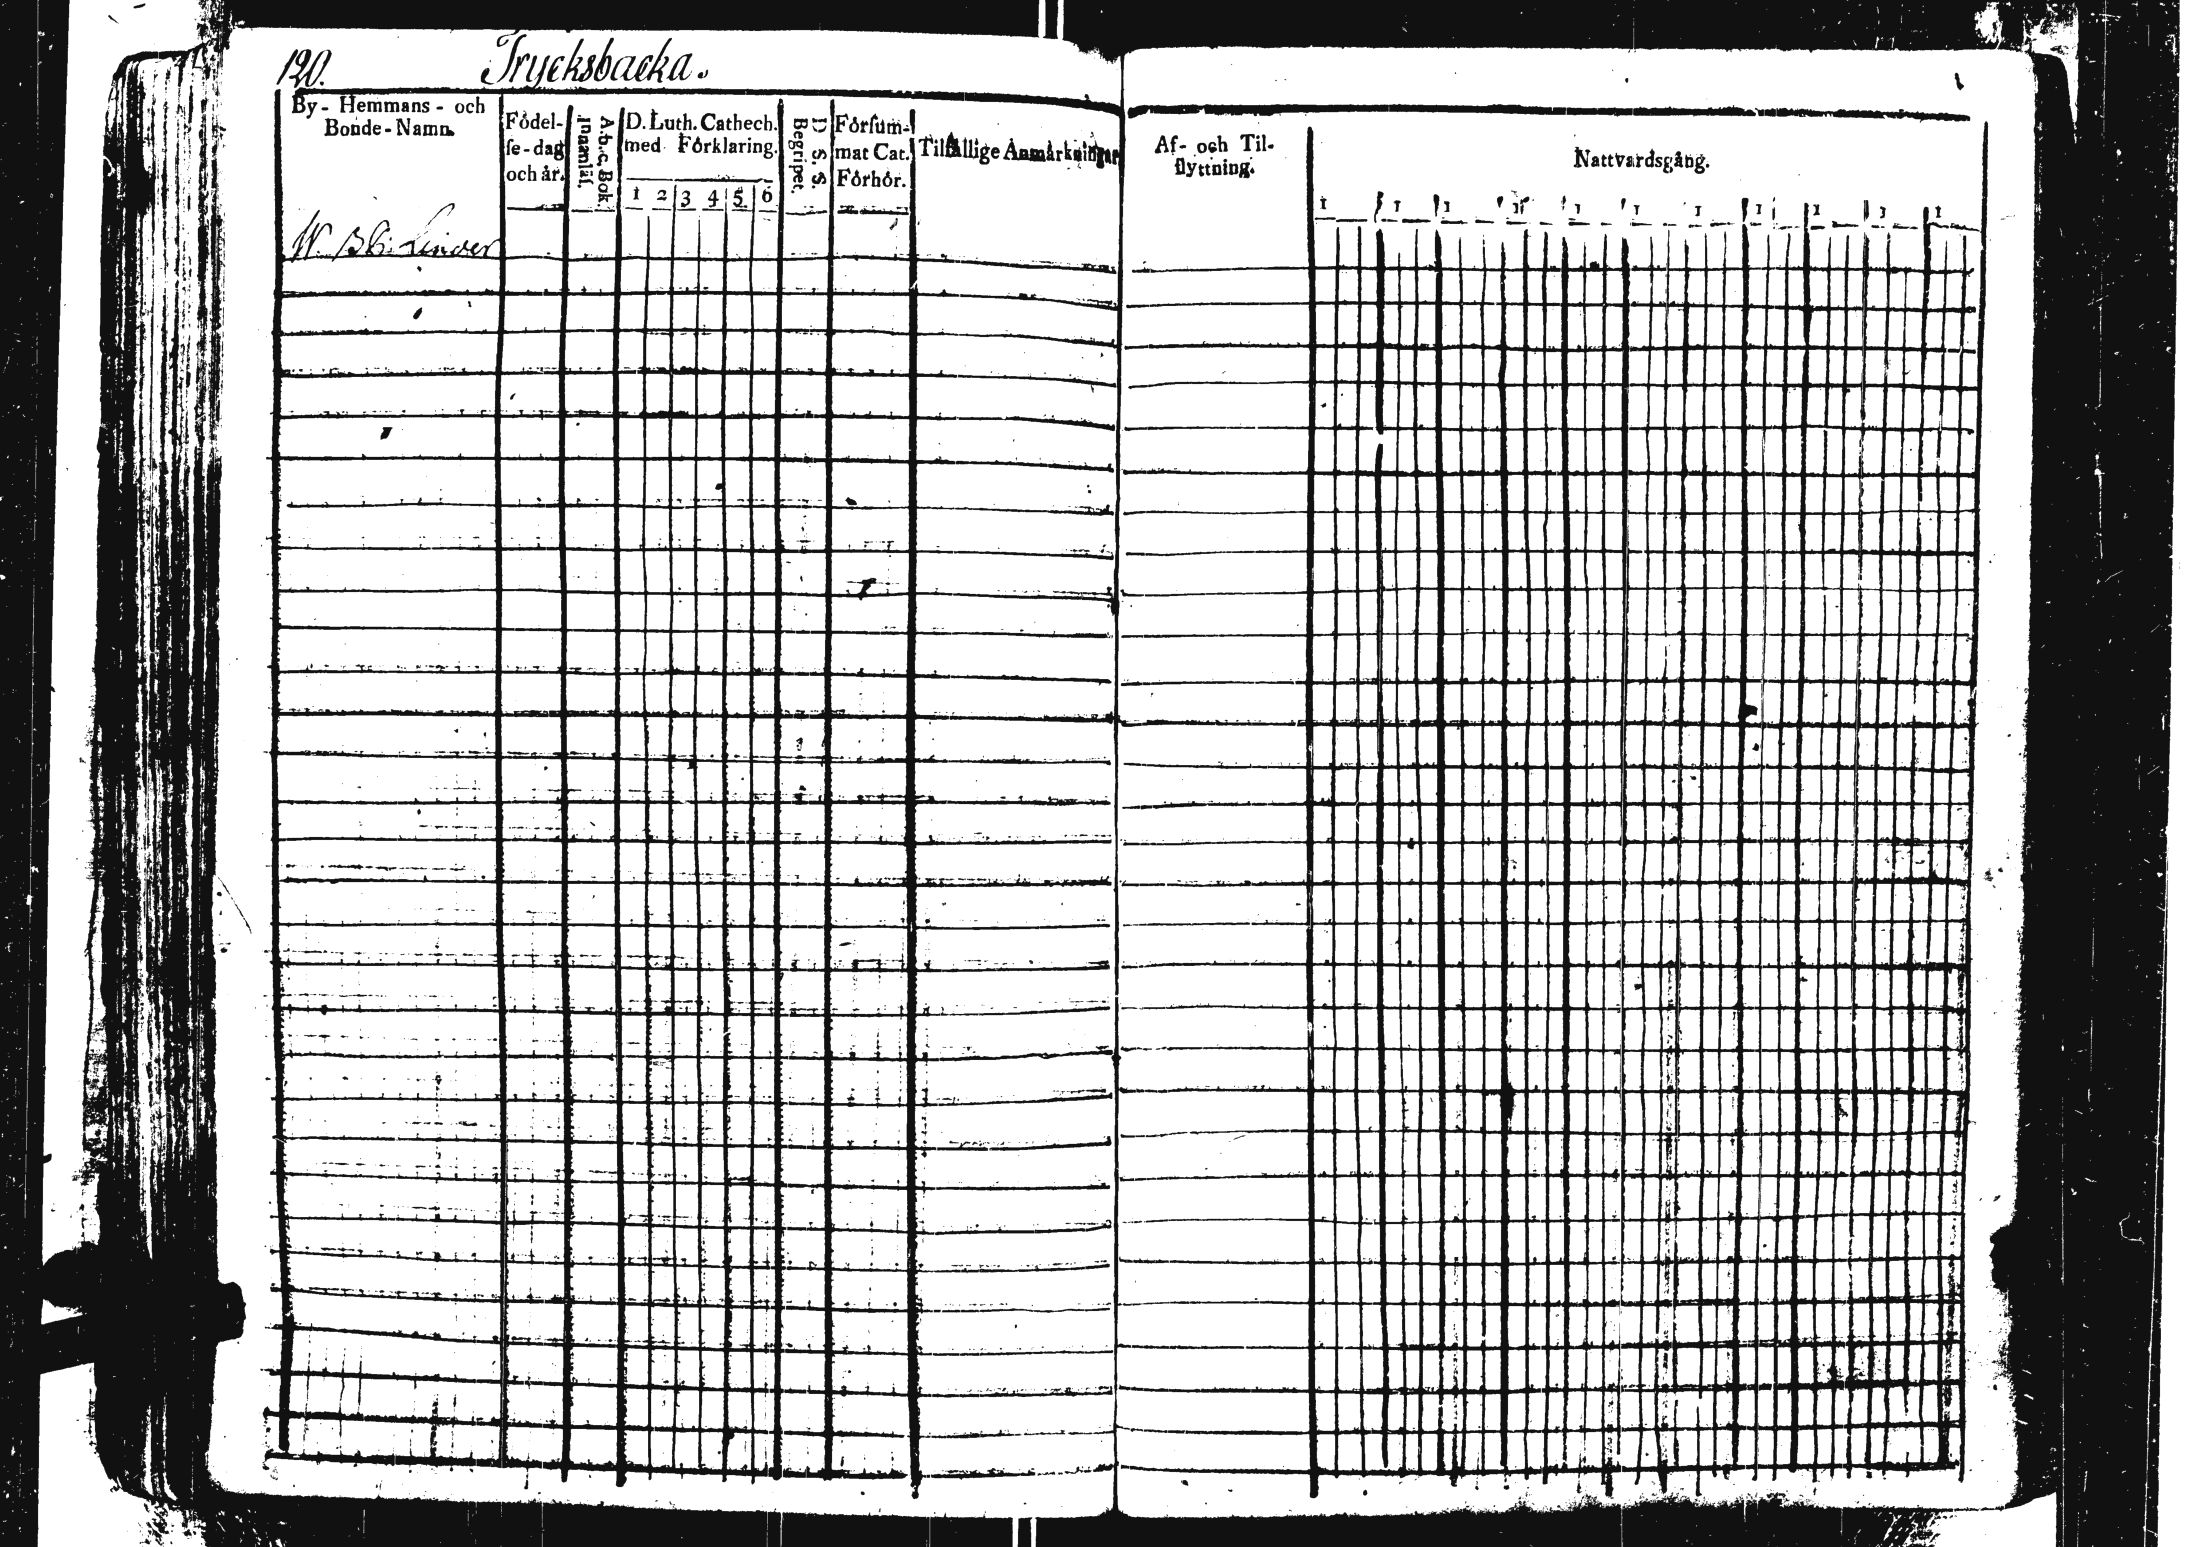 120. Trycksbacka.
By- Hemmans- och
Bonde-Namn.
Födel-
se-dag
och år.
A.b.c. Bok
Innanläs.
D. Luth. Cathech.
med Förklaring.
1 2 3 4 5 6
D. S. S.
Begripet.
Försum-
mat Cat.
Förhör.
Tilfällige Anmärkningar
Af- och Til-
flyttning.
Nattvardsgång.
1 1 1 1 1 1 1 1 1 1 1
Linder